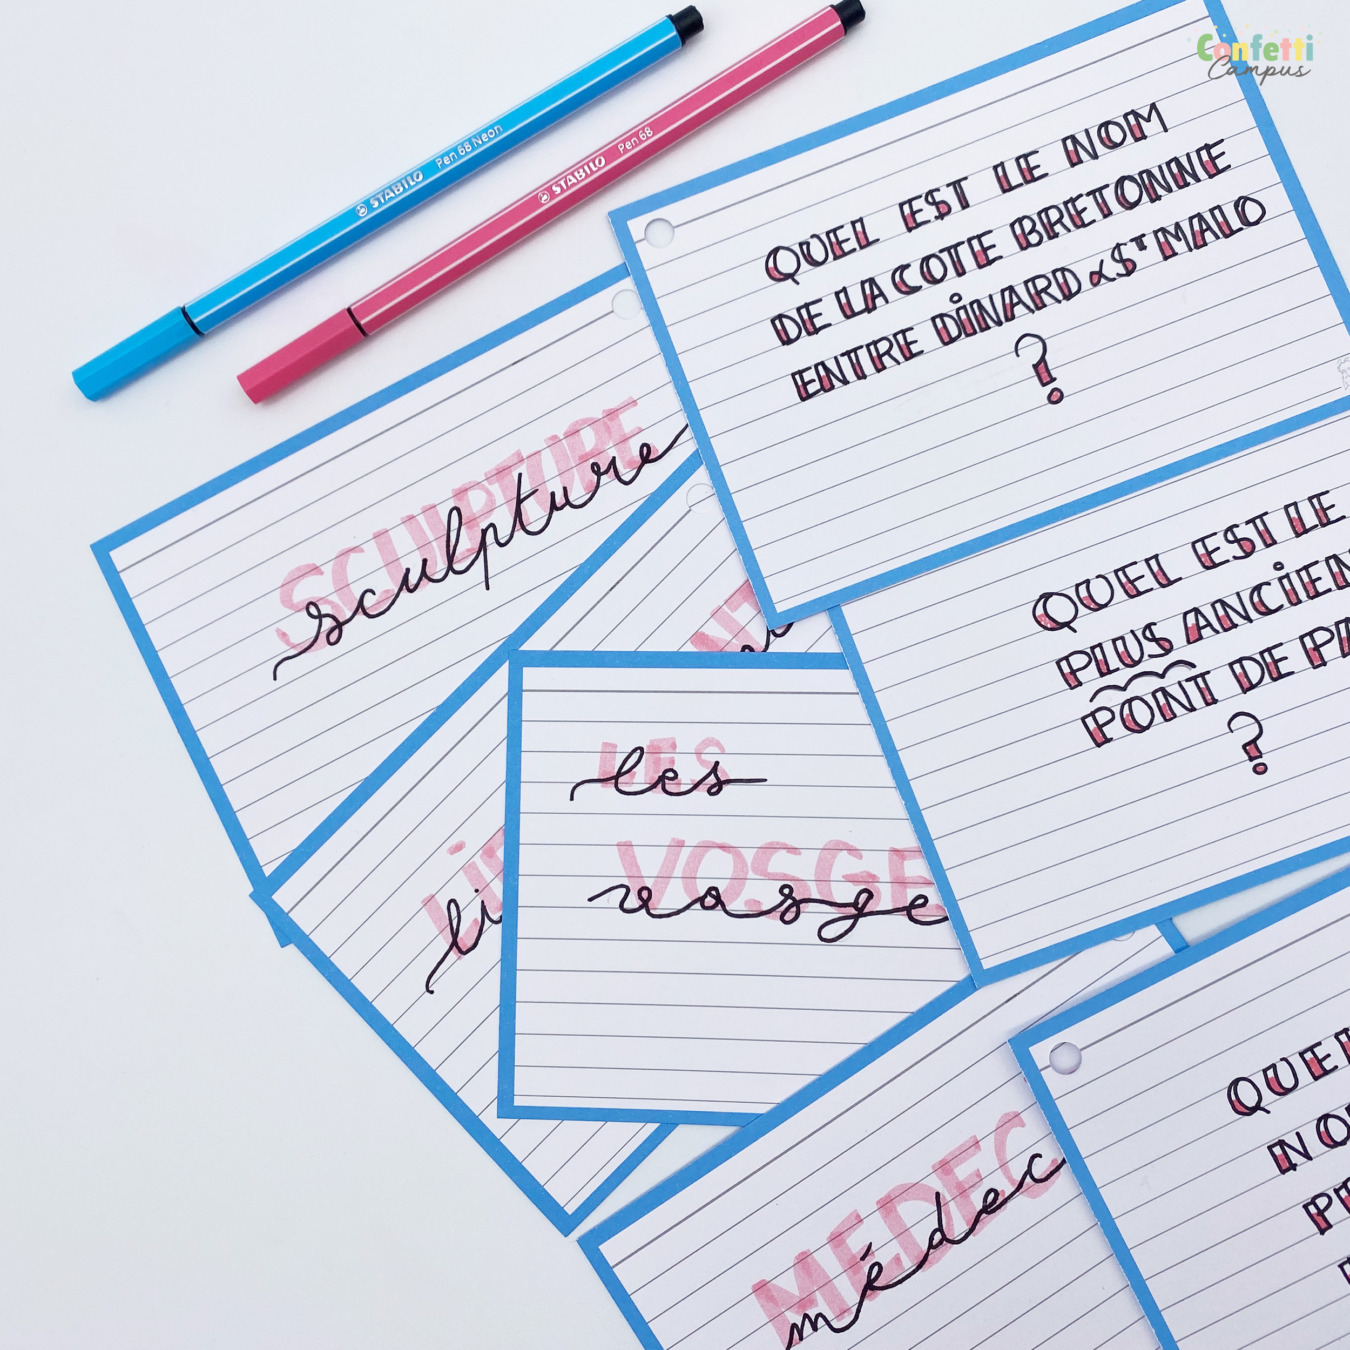 Confetti
Campus
STABILO Pen 68 Neon
STABILO Pen 68
QUEL EST LE NOM
DE LA COTE BRETONNE
ENTRE DINARD & ST MALO
?
SCULPTURE
sculpture
QUEL EST LE
PLUS ANCIEN
PONT DE PA
?
LES
les
VOSGE
vosge
li
MEDEC
médec
QUEL